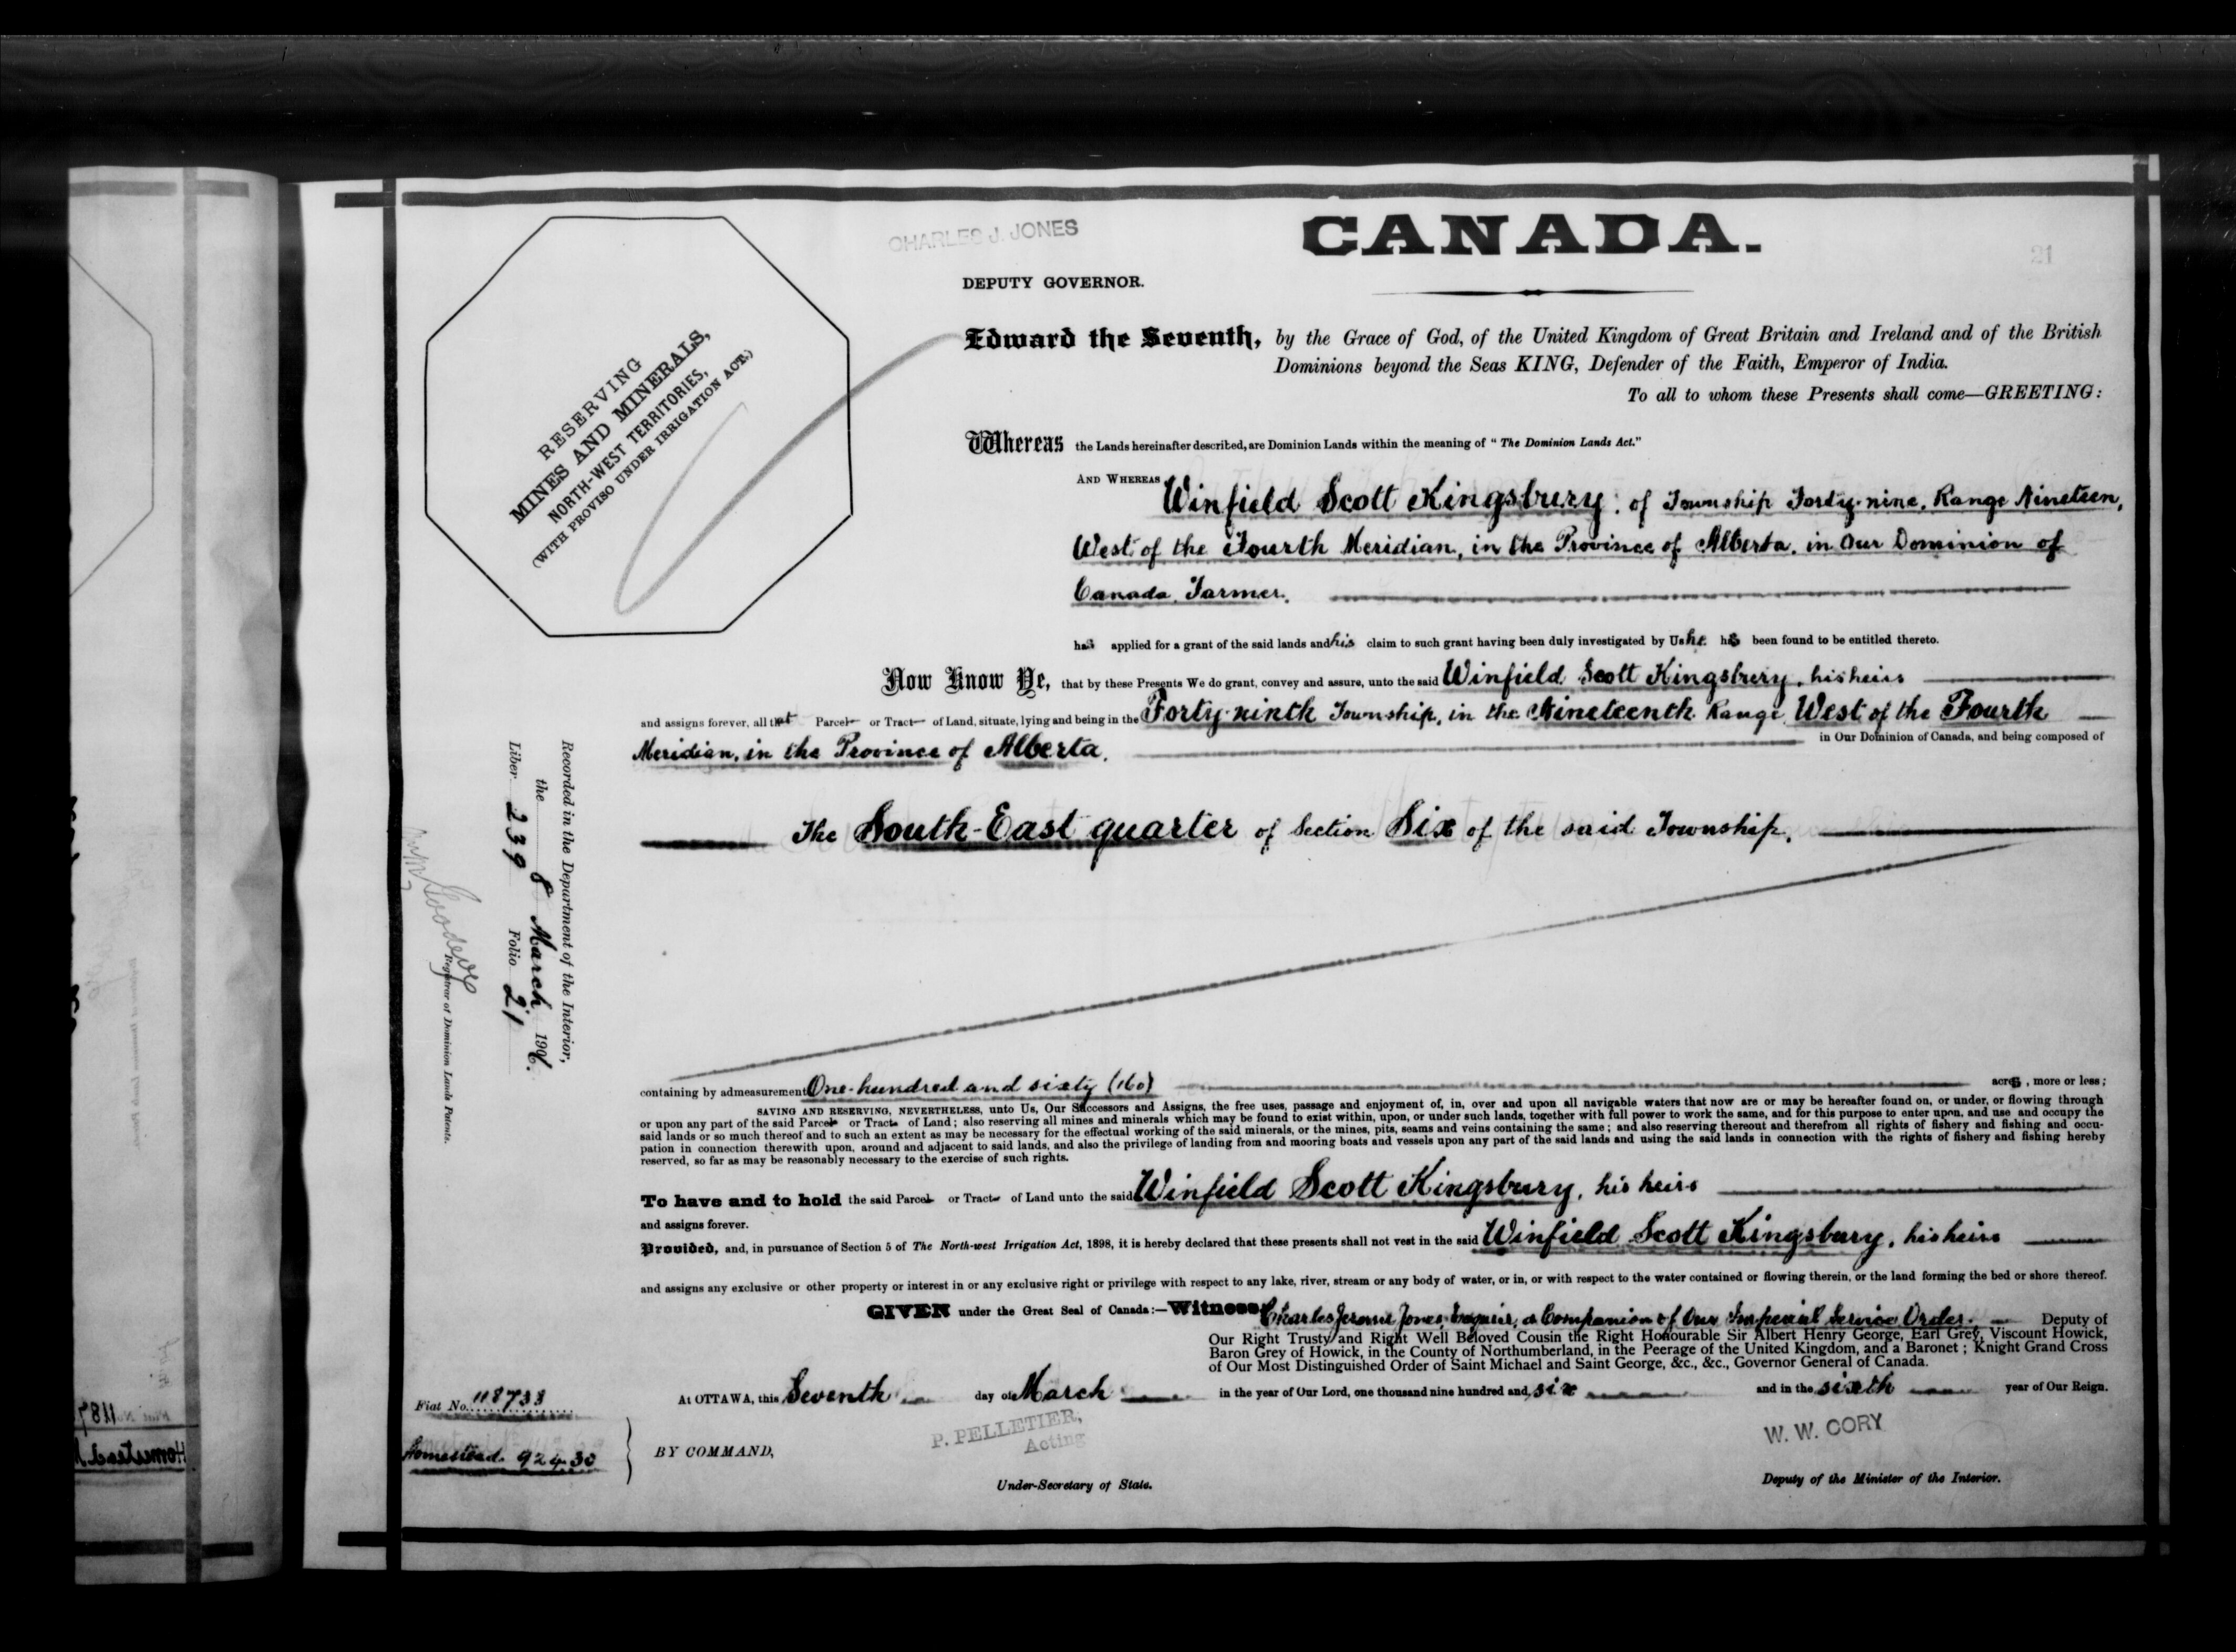 CHARLES J. JONES
CANADA.
21
DEPUTY GOVERNOR.
RESERVING
MINES AND MINERALS,
NORTH-WEST TERRITORIES,
(WITH PROVISO UNDER IRRIGATION ACT.)
Edward the Seventh, by the Grace of God, of the United Kingdom of Great Britain and Ireland and of the British
Dominions beyond the Seas KING, Defender of the Faith, Emperor of India.
To all to whom these Presents shall come—GREETING:
Whereas the Lands hereinafter described, are Dominion Lands within the meaning of "The Dominion Lands Act."
AND WHEREAS Winfield Scott Kingsbury: of Township Forty-nine, Range Nineteen,
West of the Fourth Meridian, in the Province of Alberta, in Our Dominion of
Canada, Farmer.
has applied for a grant of the said lands and his claim to such grant having been duly investigated by Us he has been found to be entitled thereto.
Now Know Ye, that by these Presents We do grant, convey and assure, unto the said Winfield Scott Kingsbury, his heirs
and assigns forever, all that Parcel or Tract of Land, situate, lying and being in the Forty-ninth Township, in the Nineteenth Range, West of the Fourth
Meridian, in the Province of Alberta, in Our Dominion of Canada, and being composed of
The South-East quarter of Section Six of the said Township,
Recorded in the Department of the Interior,
the 8 March 1906.
Liber 239 Folio 21
Registrar of Dominion Lands Patents.
containing by admeasurement One hundred and sixty (160) acres, more or less;
SAVING AND RESERVING, NEVERTHELESS, unto Us, Our Successors and Assigns, the free uses, passage and enjoyment of, in, over and upon all navigable waters that now are or may be hereafter found on, or under, or flowing through
or upon any part of the said Parcel or Tract of Land; also reserving all mines and minerals which may be found to exist within, upon, or under such lands, together with full power to work the same, and for this purpose to enter upon, and use and occupy the
said lands or so much thereof and to such an extent as may be necessary for the effectual working of the said minerals, or the mines, pits, seams and veins containing the same; and also reserving thereout and therefrom all rights of fishery and fishing and occu-
pation in connection therewith upon, around and adjacent to said lands, and also the privilege of landing from and mooring boats and vessels upon any part of the said lands and using the said lands in connection with the rights of fishery and fishing hereby
reserved, so far as may be reasonably necessary to the exercise of such rights.
To have and to hold the said Parcel or Tract of Land unto the said Winfield Scott Kingsbury, his heirs
and assigns forever.
Provided, and, in pursuance of Section 5 of The North-west Irrigation Act, 1898, it is hereby declared that these presents shall not vest in the said Winfield Scott Kingsbury, his heirs
and assigns any exclusive or other property or interest in or any exclusive right or privilege with respect to any lake, river, stream or any body of water, or in, or with respect to the water contained or flowing therein, or the land forming the bed or shore thereof.
GIVEN under the Great Seal of Canada:—Witness, Charles Jerome Jones, Esquire, a Companion of Our Imperial Service Order. Deputy of
Our Right Trusty and Right Well Beloved Cousin the Right Honourable Sir Albert Henry George, Earl Grey, Viscount Howick,
Baron Grey of Howick, in the County of Northumberland, in the Peerage of the United Kingdom, and a Baronet; Knight Grand Cross
of Our Most Distinguished Order of Saint Michael and Saint George, &c., &c., Governor General of Canada.
At OTTAWA, this Seventh day of March in the year of Our Lord, one thousand nine hundred and six and in the sixth year of Our Reign.
Fiat No. 118733
Homestead 92430
BY COMMAND,
P. PELLETIER,
Acting
Under-Secretary of State.
W. W. CORY
Deputy of the Minister of the Interior.